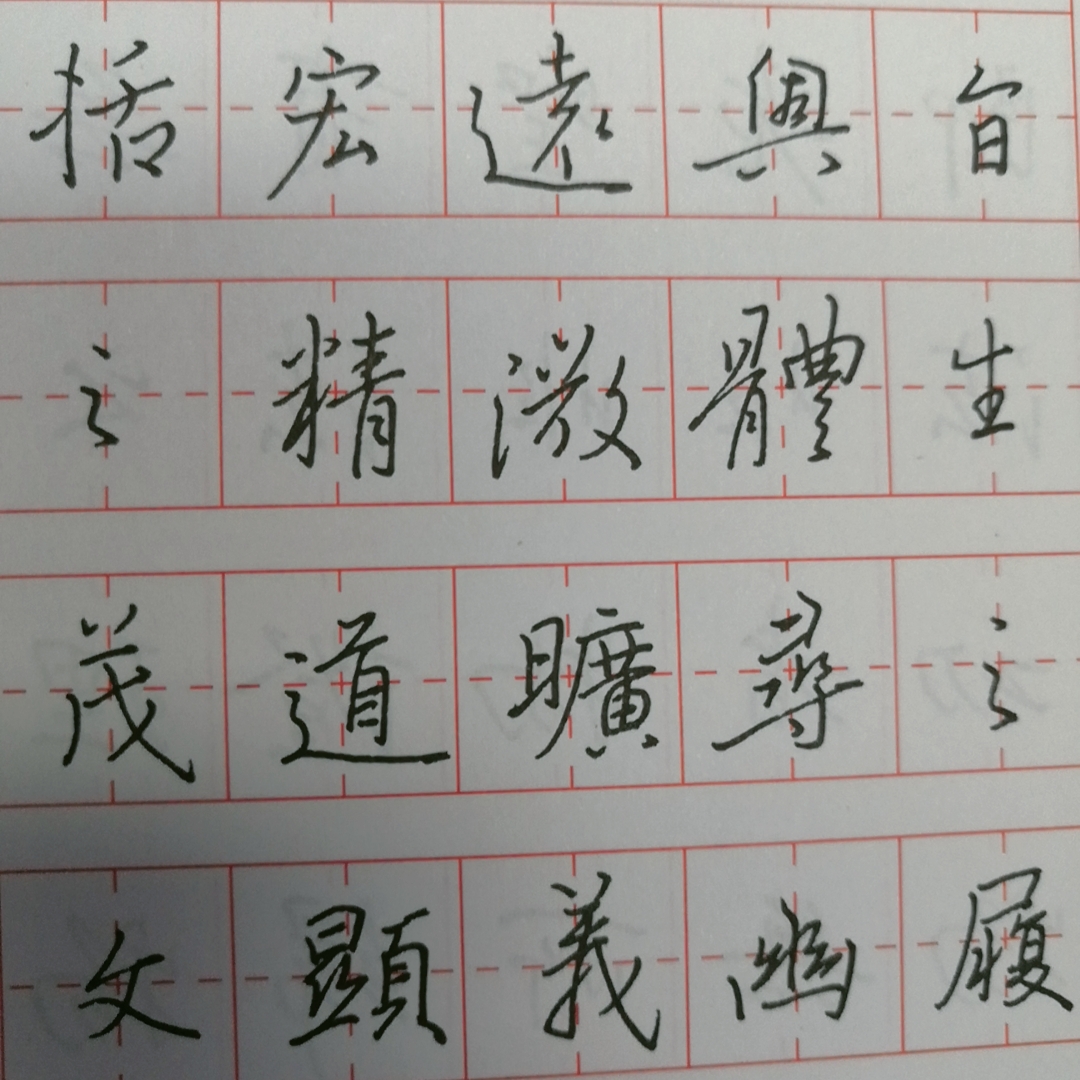 括宏遠奧旨
之精微體生
茂道曠尋之
文顯義幽履